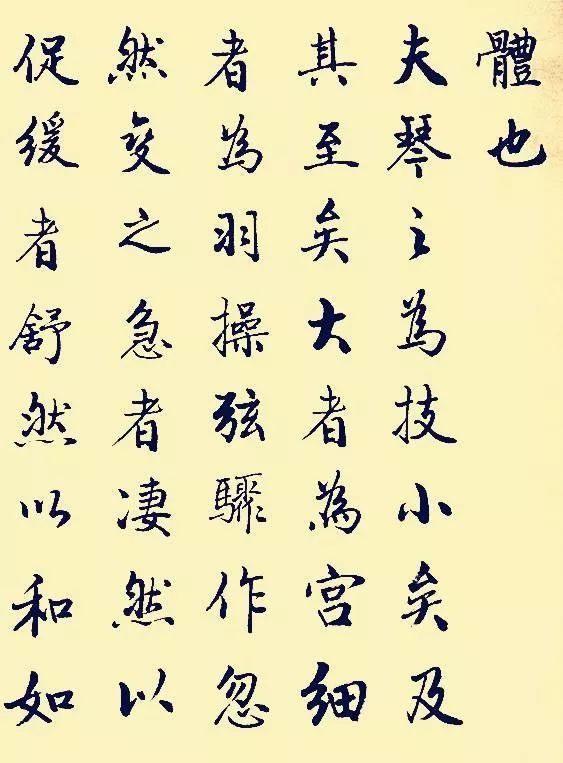 體也
夫琴之為技小矣及
其至矣大者為宮細
者為羽操弦驟作忽
然變之急者凄然以
促緩者舒然以和如